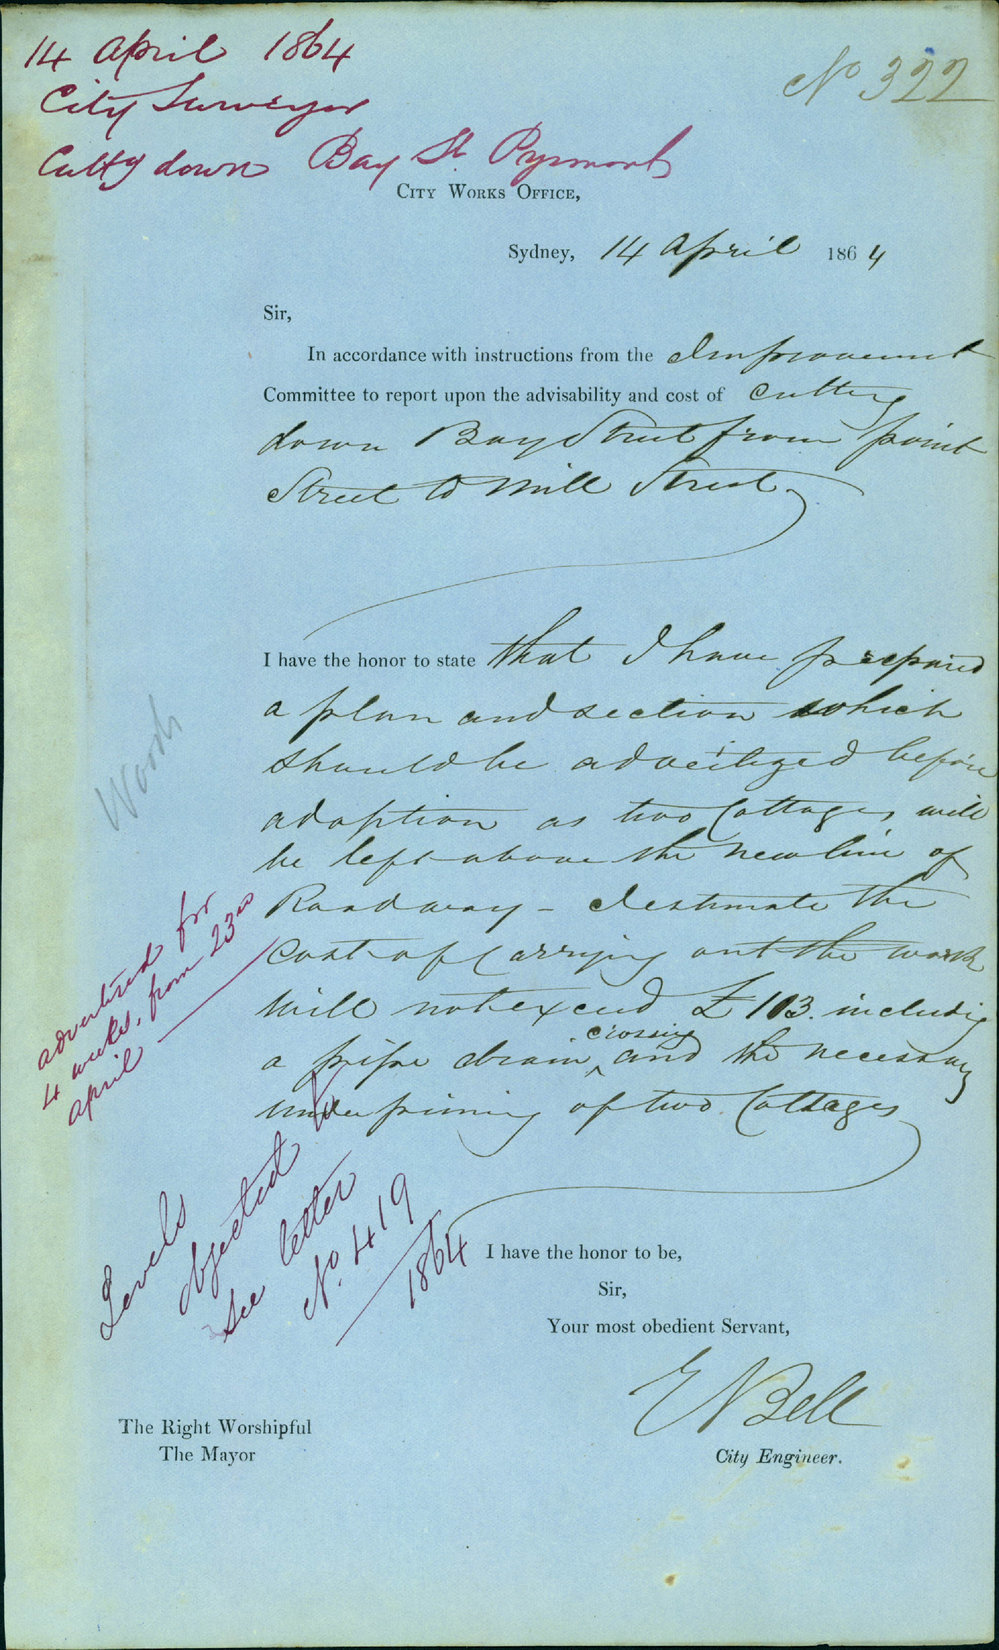 14 April 1864
No 322
City Surveyor
Cuttg down Bay St Pyrmont
City Works Office,
Sydney, 14 April 1864
Sir,
In accordance with instructions from the Improvement
Committee to report upon the advisability and cost of cutting
down Bay Street from point
Street to Mill Street
I have the honor to state that I have prepared
a plan and section which
should be advertized before
adoption as two Cottages will
be left above the new line of
Roadway - I estimate the
cost of Carrying out the work
will not exceed £103. including
a pipe drain crossing and the necessary
underpinning of two Cottages
Woods
advertised for
4 weeks, from 23rd
April
Levels
objected to
See letter
No. 419
1864
I have the honor to be,
Sir,
Your most obedient Servant,
E N Bell
City Engineer.
The Right Worshipful
The Mayor